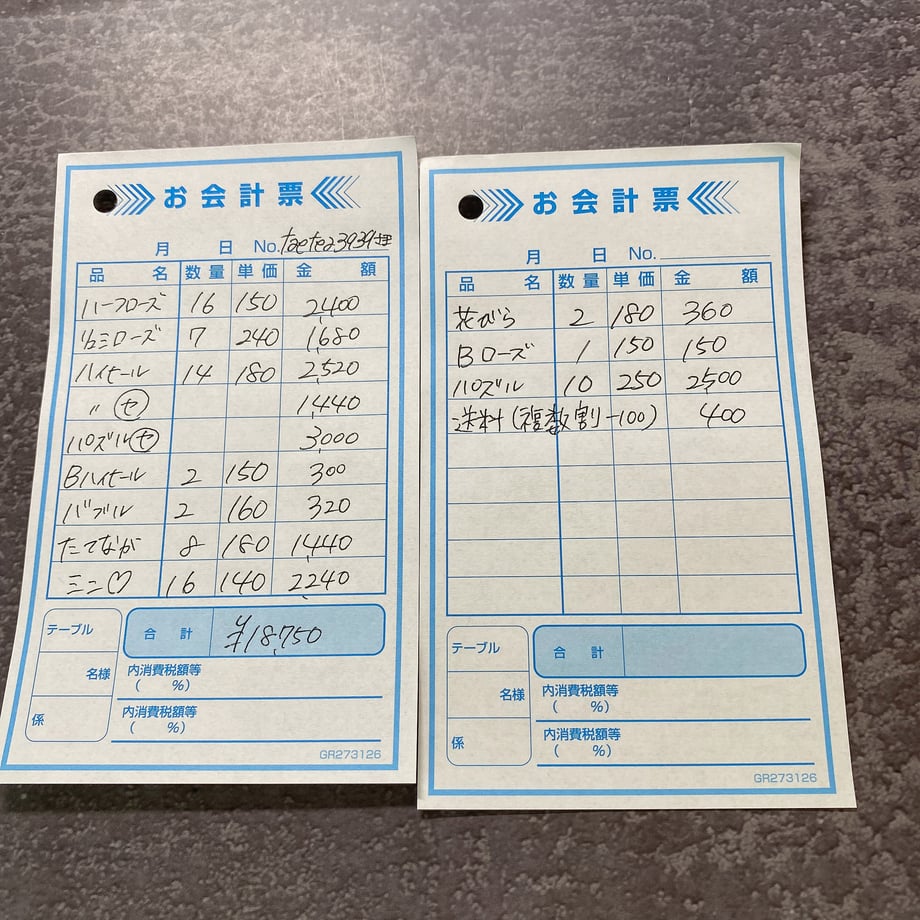 お会計票
月 日 No. taetea3939様
品名 数量 単価 金額
ハーフローズ 16 150 2,400
カミローズ 7 240 1,680
ハイヒール 14 180 2,520
〃 セ 1,440
パズル セ 3,000
Bハイヒール 2 150 300
バブル 2 160 320
たてなが 8 180 1,440
ミニ♡ 16 140 2,240
テーブル
合計 ¥18,750
名様
内消費税額等
( %)
係
内消費税額等
( %)
GR273126
お会計票
月 日 No.
品名 数量 単価 金額
花びら 2 180 360
Bローズ 1 150 150
パズル 10 250 2,500
送料(複数割-100) 400
テーブル
合計
名様
内消費税額等
( %)
係
内消費税額等
( %)
GR273126